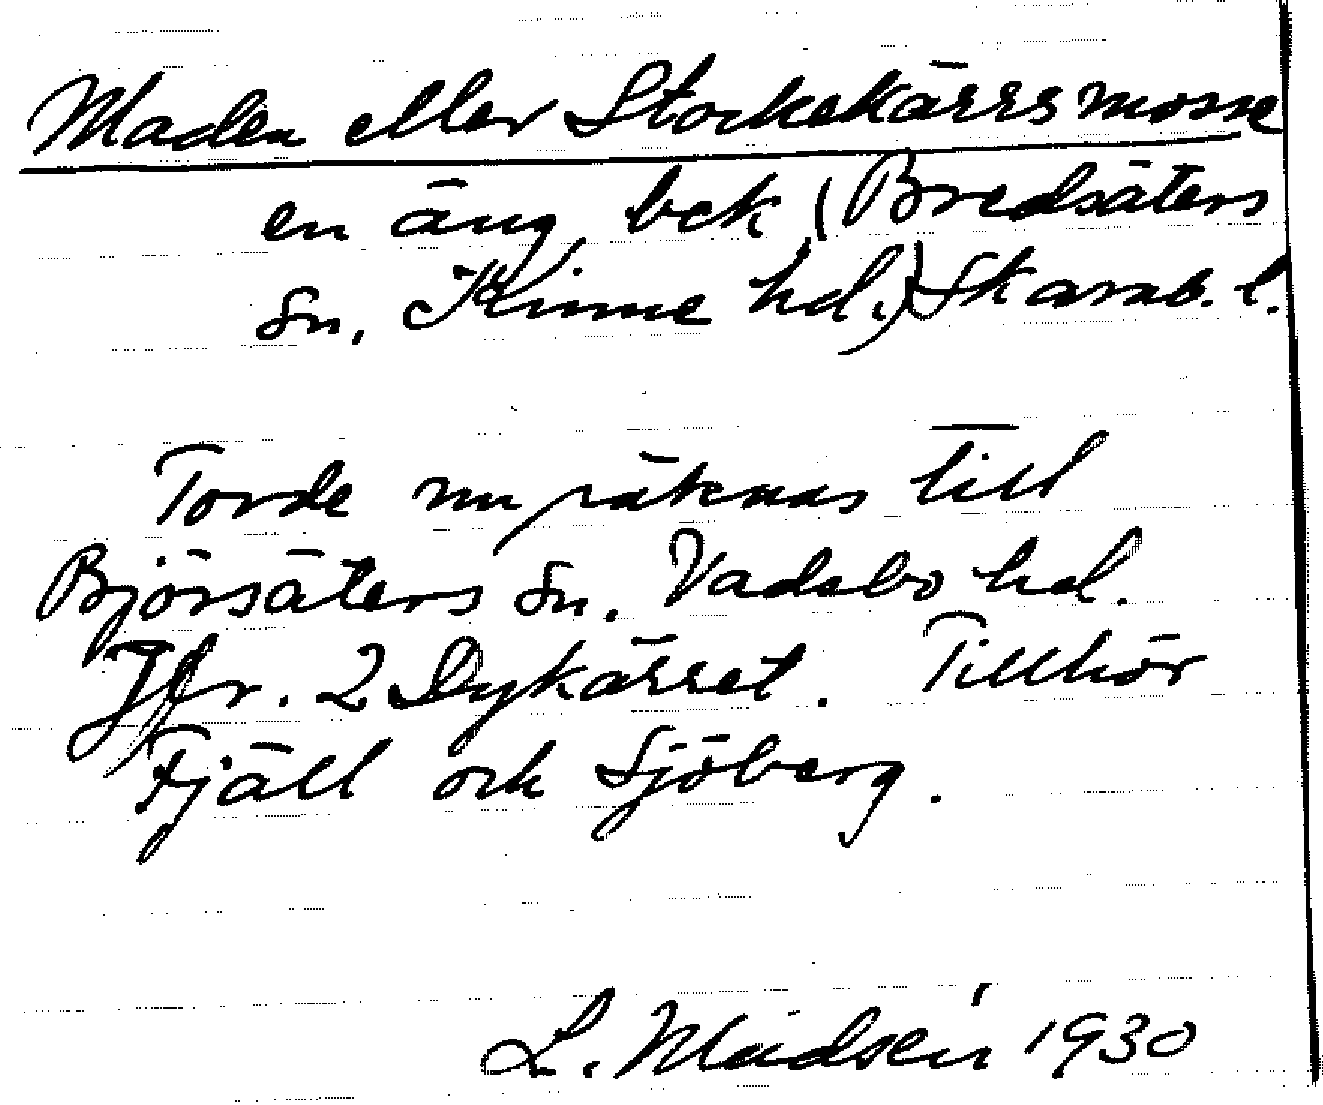 Maden eller Stockekärrsmosse
en äng, bek (Bredsäters
Sn. Kinne hd.) Skarab. l.
Torde nu räknas till
Björsäters Sn. Vadsbo hd.
Jfr. 2 Dykärret. Tillhör
Fjäll och Sjöberg.
L. Mödsén 1930